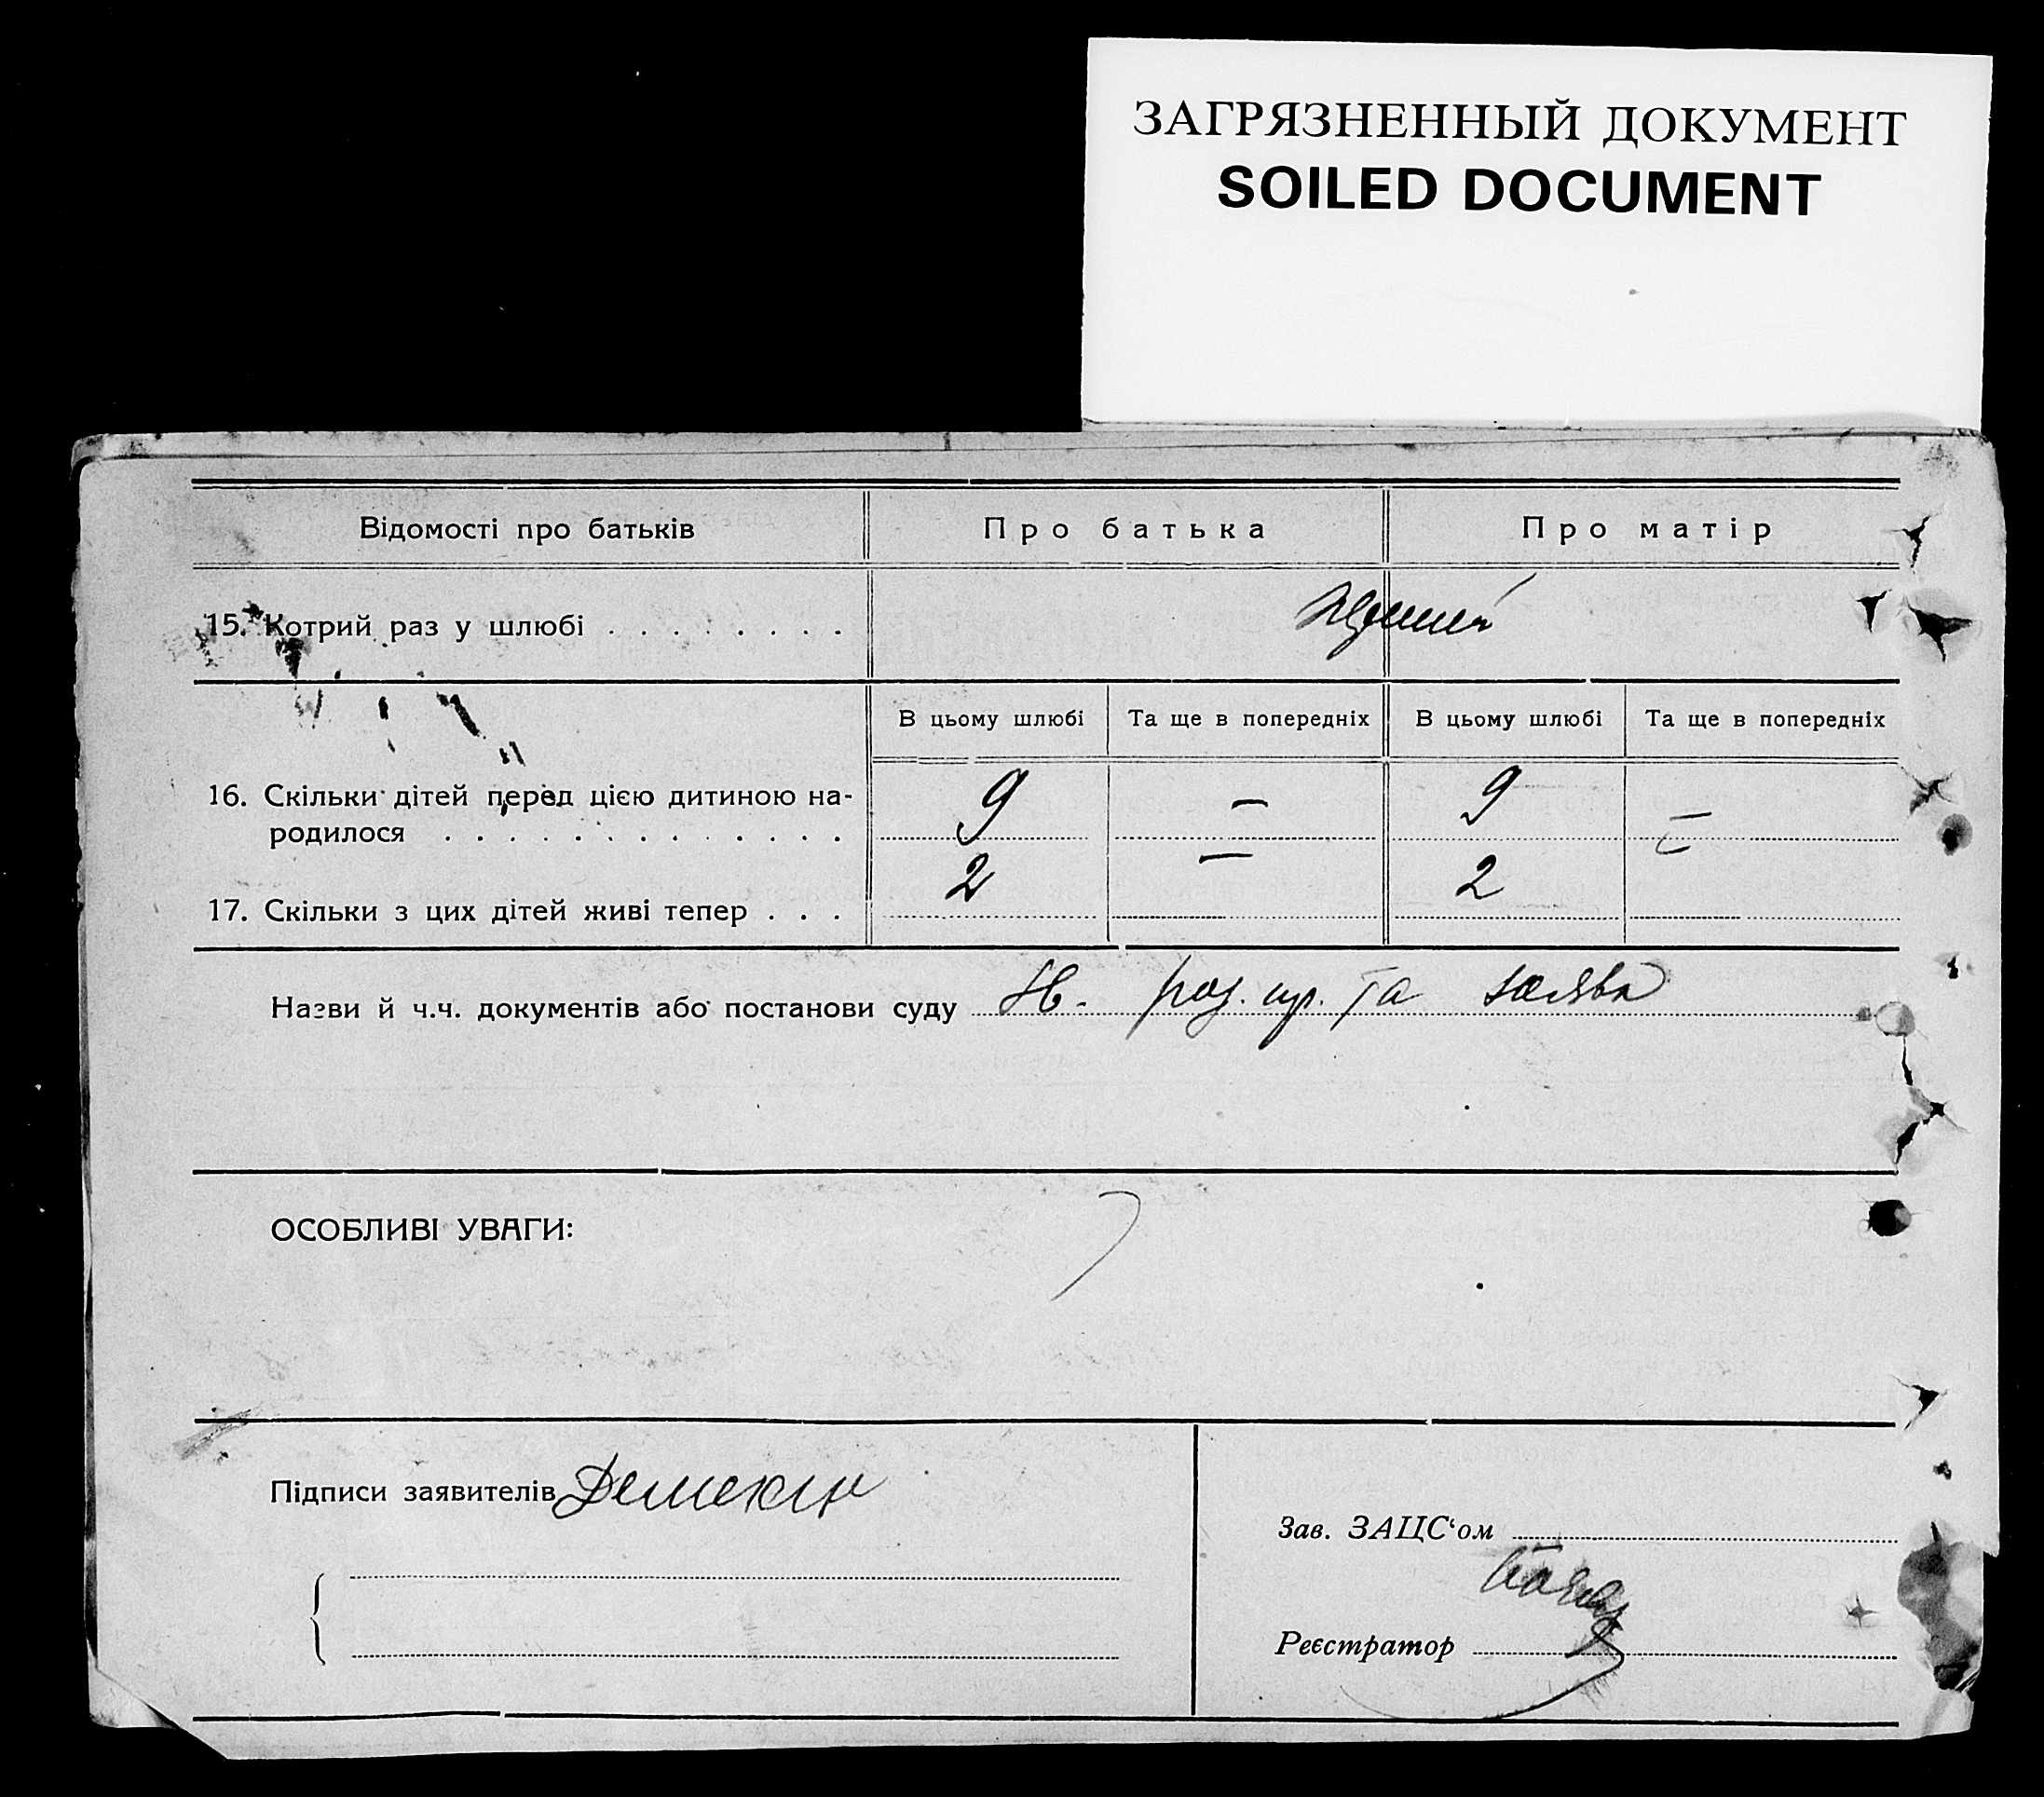 ЗАГРЯЗНЕННЫЙ ДОКУМЕНТ
SOILED DOCUMENT
Відомості про батьків
Про батька
Про матір
15. Котрий раз у шлюбі . . . . . . . .
В цьому шлюбі
Та ще в попередніх
В цьому шлюбі
Та ще в попередніх
16. Скільки дітей перед цією дитиною на-
родилося . . . . . . . . . . . . . 9 — 9 —
17. Скільки з цих дітей живі тепер . . . 2 — 2
Назви й ч.ч. документів або постанови суду та заява
ОСОБЛИВІ УВАГИ:
Підписи заявителів
Зав. ЗАЦС‘ом
Реєстратор